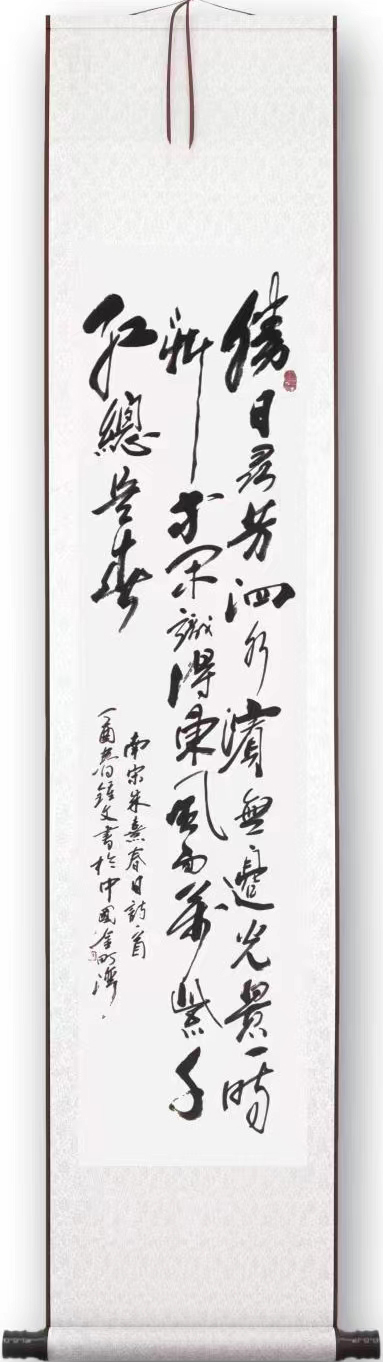 勝日尋芳泗水濱無邊光景一時
新等閑識得東風面萬紫千
紅總是春
南宋朱熹春日詩一首
丁酉春鍾文書於中國金町灣